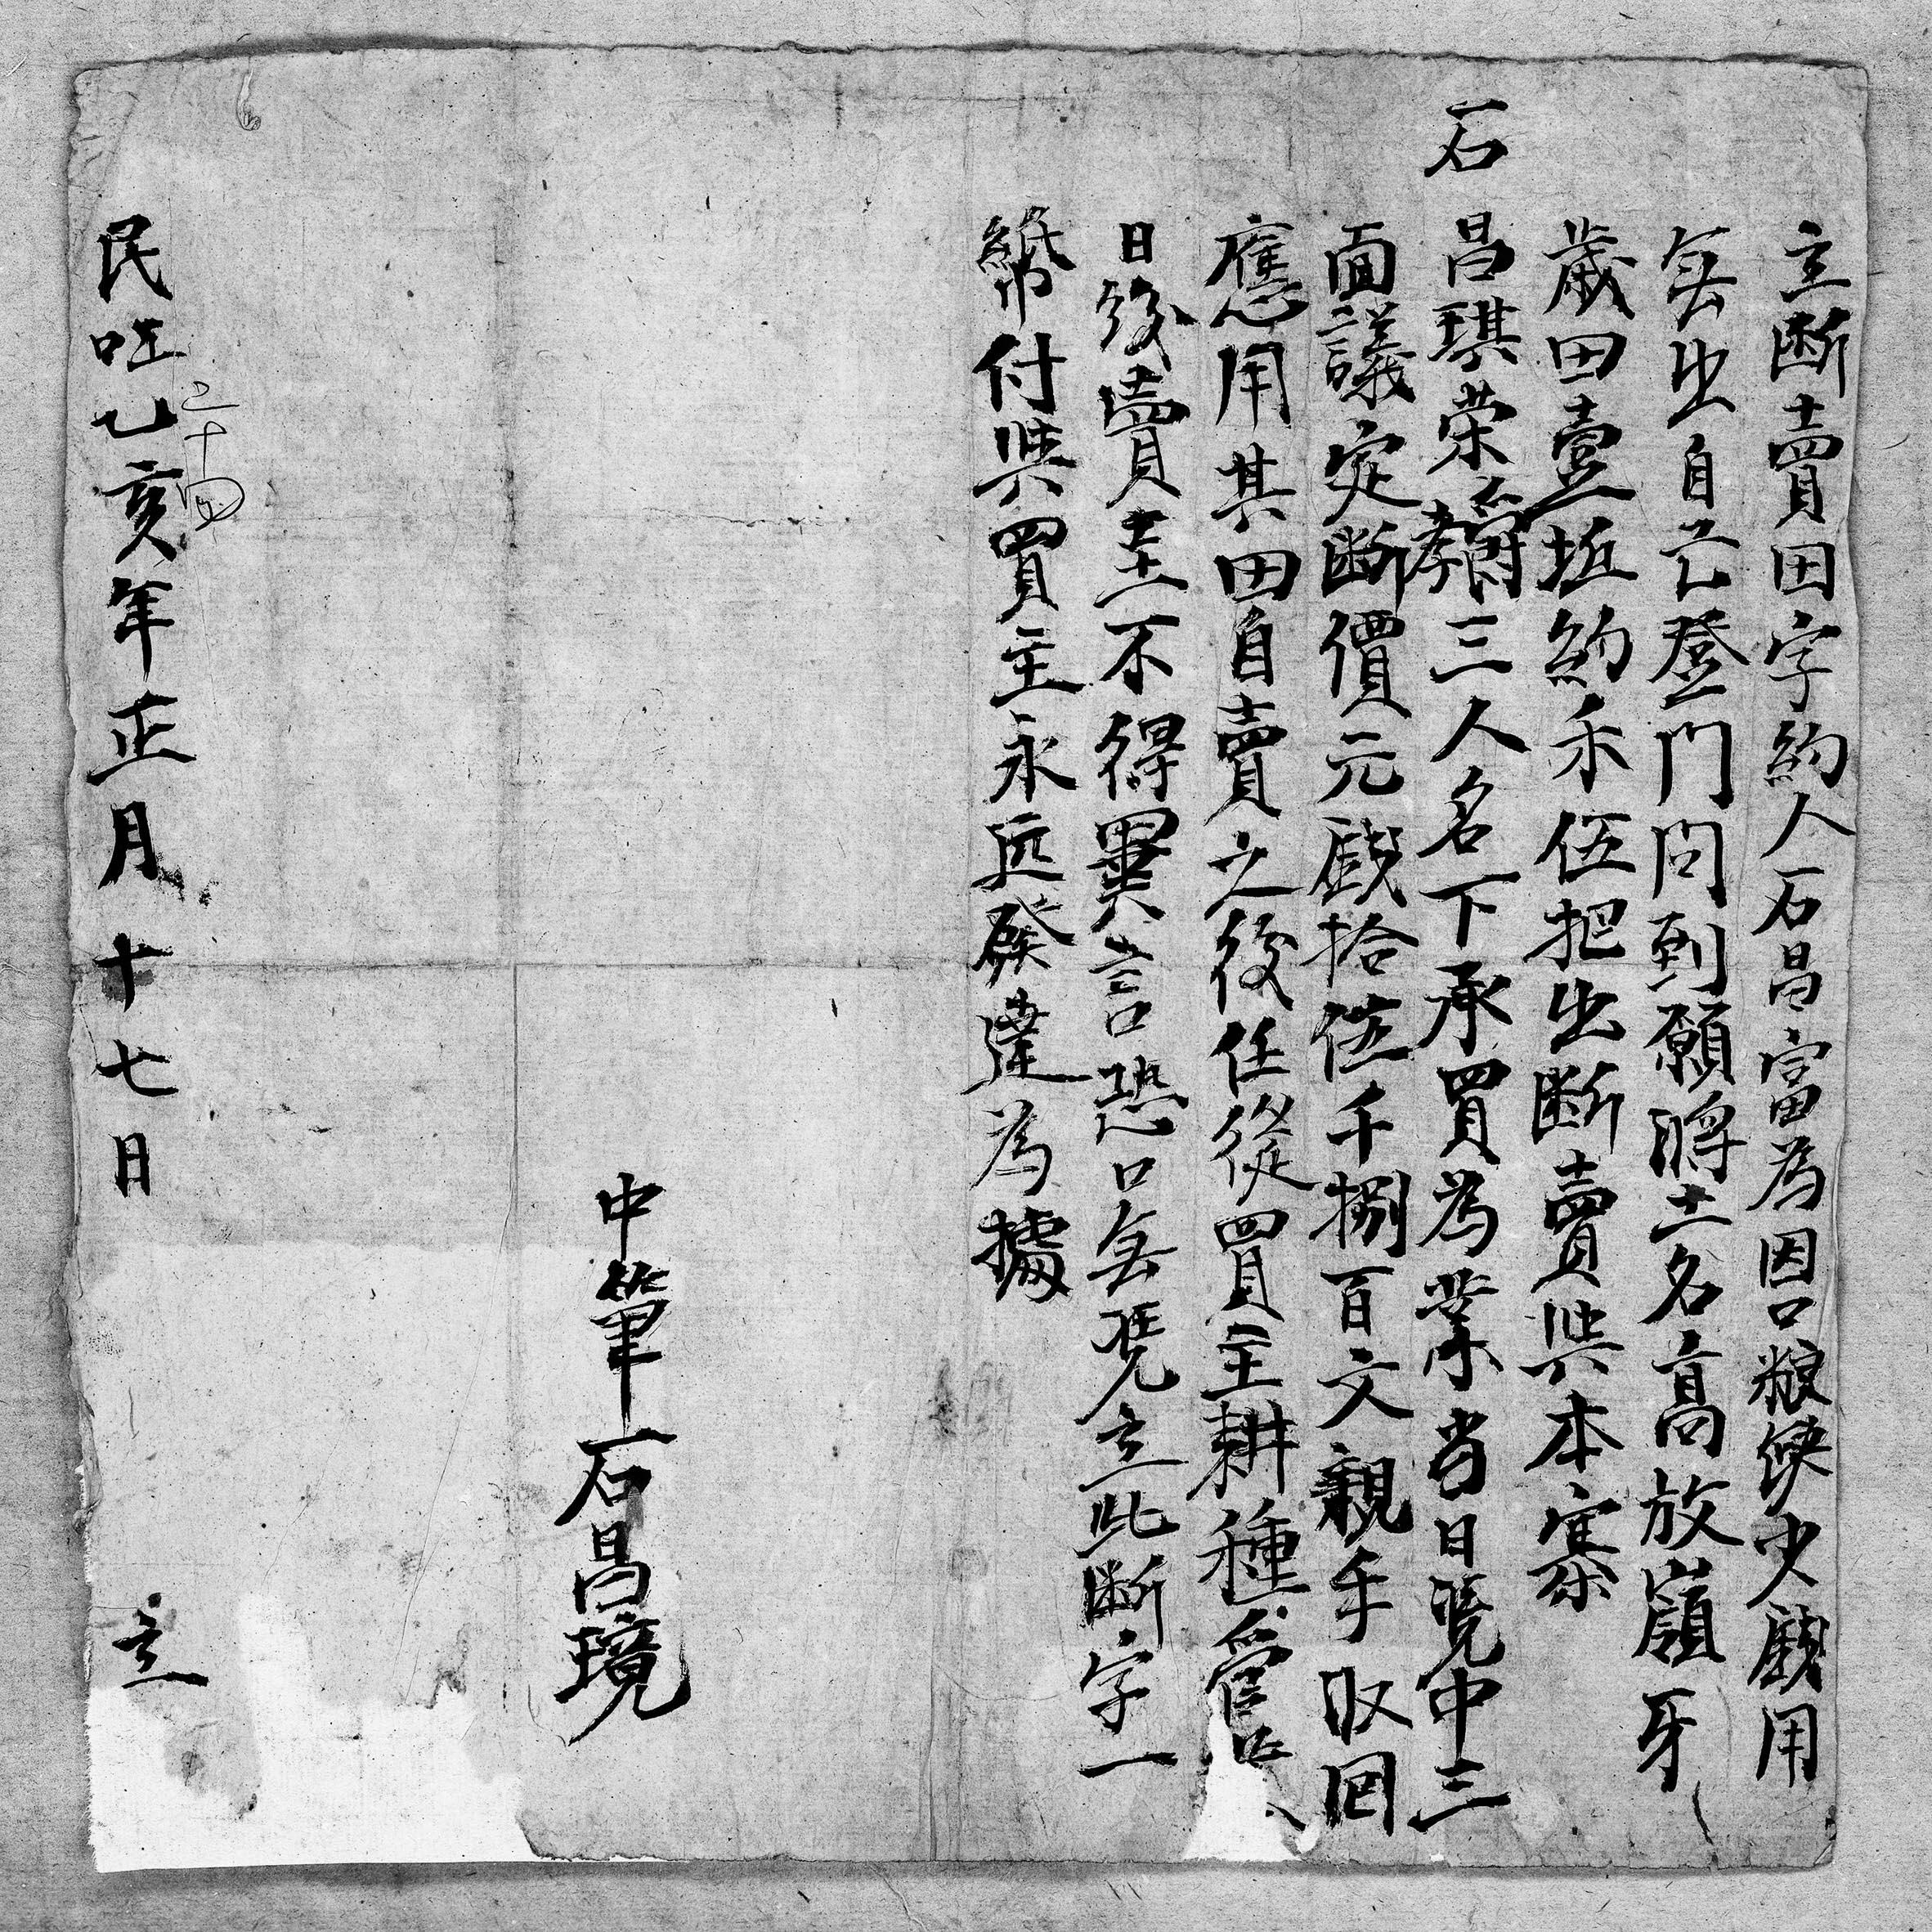 立断賣田字約人石昌富為因口粮缺少戲用
無出自己登門問到願將土名高放嶺牙
歲田壹坵約禾伍把出断賣與本寨
石昌琪荣 三人名下承買為業当日凭中三
面議定断價元戲拾伍千捌百文親手收回
應用其田自賣之後任從買主耕種管
日後賣主不得異言恐口無凭立此断字一
紙付與買主永遠發達為據
中筆石昌境
民 乙亥年正月十七日 立